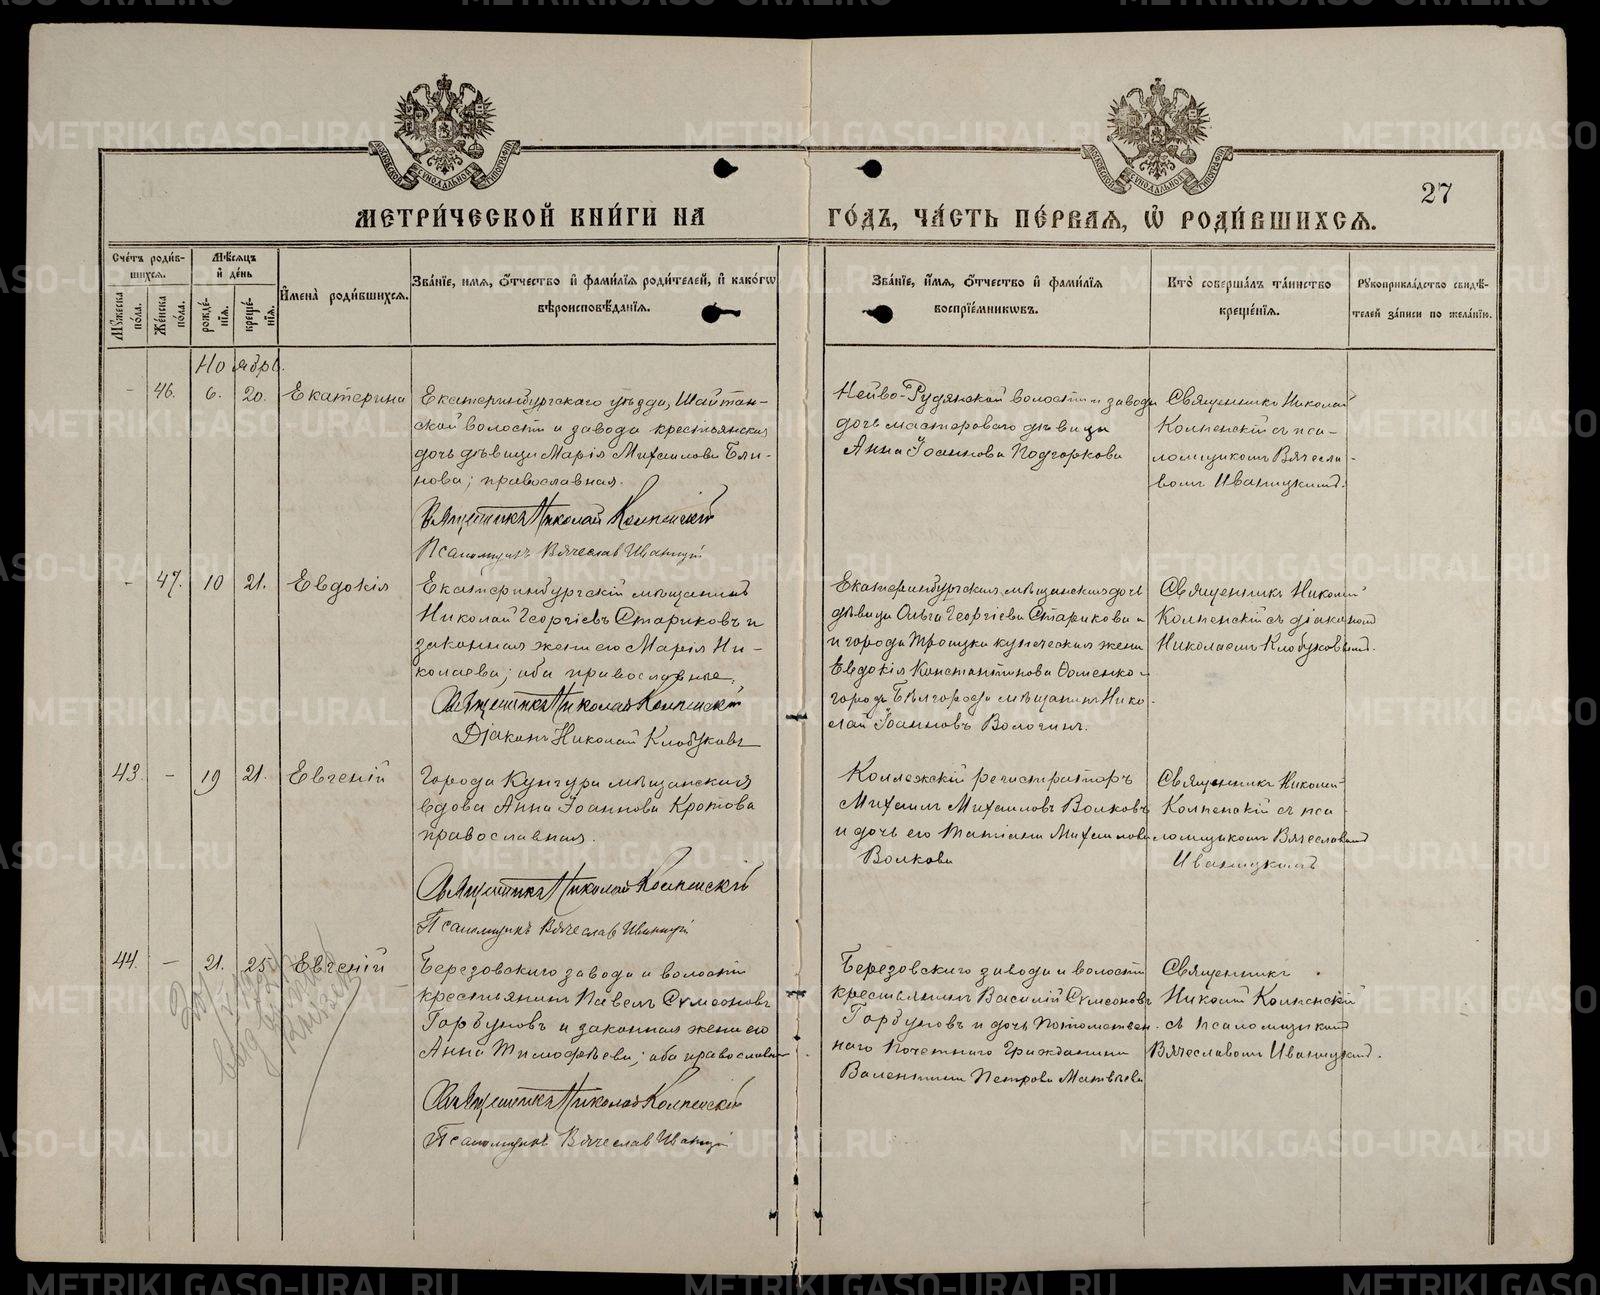 27
МЕТРИ́ЧЕСКОЙ КНИ́ГИ НА ГО́ДЪ, ЧА́СТЬ ПЕ́РВАѦ, Ѡ҆ РОДИ́ВШИХСѦ.
Сче́тъ роди́вшихсѧ.
Мꙋ́жеска по́ла.
Же́нска по́ла.
Мѣ́сѧцъ и҆ де́нь
рожде́нїѧ.
креще́нїѧ.
И҆мена̀ роди́вшихсѧ.
Зва́нїе, и҆мѧ, ѻ҆́тчество и҆ фами́лїѧ роди́телей, и҆ како́гѡ
вѣроисповѣ́данїѧ.
Зва́нїе, и҆́мѧ, ѻ҆́тчество и҆ фами́лїѧ
воспрїе́мникѡвъ.
Кто̀ соверша́лъ та́инство
креще́нїѧ.
Рꙋкоприкла́дство свидѣ́-
телей за́писи по жела́нїю.
Ноябрь.
- 46. 6. 20. Екатерина
Екатеринбургскаго уѣзда, Шайтан-
ской волости и завода крестьянская
дочь дѣвица Марія Михаилова Бли-
нова; православная.
Священникъ Николай Колпенскій
Псаломщикъ Вячеслав Иваницкій
Нейво-Рудянской волости и завода
дочь мастероваго дѣвица
Анна Іоаннова Подгоркова
Священникъ Николай
Колпенскій съ пса-
ломщикомъ Вячесла-
вомъ Иваницкимъ.
- 47. 10 21. Евдокія
Екатеринбургскій мѣщанинъ
Николай Георгіевъ Стариковъ и
законная жена его Марія Ни-
колаева; оба православные.
Священникъ Николай Колпенскій
Діаконъ Николай Клобуковъ
Екатеринбургская мѣщанская дочь
дѣвица Ольга Георгіева Старикова и
и города Троицка купеческая жена
Евдокія Константинова
города Бѣлгорода мѣщанинъ Нико-
лай Іоанновъ Вологинъ.
Священникъ Николай
Колпенскій съ діакономъ
Николаемъ Клобуковымъ.
43. - 19 21. Евгеній
Города Кунгура мѣщанская
вдова Анна Іоаннова Кротова
православная.
Священникъ Николай Колпенскій
Псаломщикъ Вячеслав Иваницкій
Коллежскій регистраторъ
Михаилъ Михаиловъ Волковъ
и дочь его Татіана Михаилова
Волкова
Священникъ Николай
Колпенскій съ пса
ломщикомъ Вячеславомъ
Иваницкимъ
44. - 21. 25. Евгеній
Березовскаго завода и волости
крестьянинъ Павелъ Сѵмеоновъ
Горбуновъ и законная жена его
Анна Тимофѣева; оба православн
Священникъ Николай Колпенскій
Псаломщикъ Вячеслав Иваницкій
Березовскаго завода и волости
крестьянинъ Василій Сѵмеоновъ
Горбуновъ и дочь Потомствен-
наго Почетнаго Гражданина
Валентина Петрова Матвѣева
Священникъ
Николай Колпенскій
съ псаломщикомъ
Вячеславомъ Иваницкимъ.
METRIKI.GASO-URAL.RU